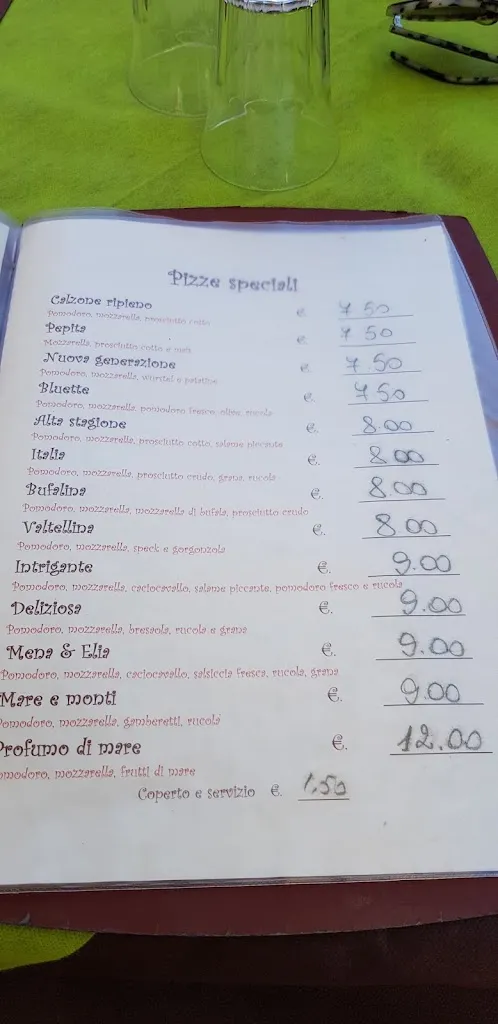 Pizze speciali
Calzone ripieno €. 7.50
Pomodoro, mozzarella, prosciutto cotto
Pepita €. 7.50
Mozzarella, prosciutto cotto e mais
Nuova generazione €. 7.50
Pomodoro, mozzarella, wurstel e patatine
Bluette €. 7.50
Pomodoro, mozzarella, pomodoro fresco, olive, rucola
Alta stagione €. 8.00
Pomodoro, mozzarella, prosciutto cotto, salame piccante
Italia €. 8.00
Pomodoro, mozzarella, prosciutto crudo, grana, rucola
Bufalina €. 8.00
Pomodoro, mozzarella, mozzarella di bufala, prosciutto crudo
Valtellina €. 8.00
Pomodoro, mozzarella, speck e gorgonzola
Intrigante €. 9.00
Pomodoro, mozzarella, caciocavallo, salame piccante, pomodoro fresco e rucola
Deliziosa €. 9.00
Pomodoro, mozzarella, bresaola, rucola e grana
Mena & Elia €. 9.00
Pomodoro, mozzarella, caciocavallo, salsiccia fresca, rucola, grana
Mare e monti €. 9.00
Pomodoro, mozzarella, gamberetti, rucola
Profumo di mare €. 12.00
omodoro, mozzarella, frutti di mare
Coperto e servizio €. 1,50